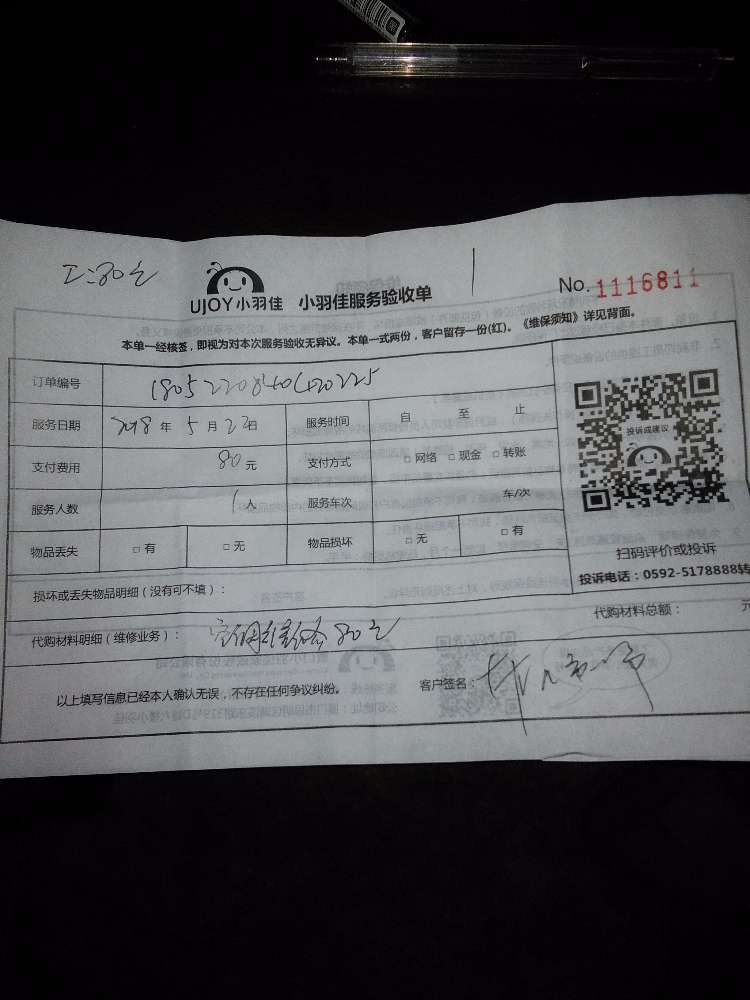 工:80元
UJOY小羽佳 小羽佳服务验收单
No. 1116811
本单一经核签，即视为对本次服务验收无异议。本单一式两份，客户留存一份(红)。《维保须知》详见背面。
订单编号
服务日期 2018年5月22日 服务时间 自 至 止
支付费用 80元 支付方式 □网络 □现金 □转账
服务人数 1人 服务车次 车/次
物品丢失 □有 □无 物品损坏 □无 □有
投诉或建议
扫码评价或投诉
投诉电话：0592-5178888转
损坏或丢失物品明细（没有可不填）：
代购材料明细（维修业务）： 80元
代购材料总额： 元
以上填写信息已经本人确认无误，不存在任何争议纠纷。
客户签名：